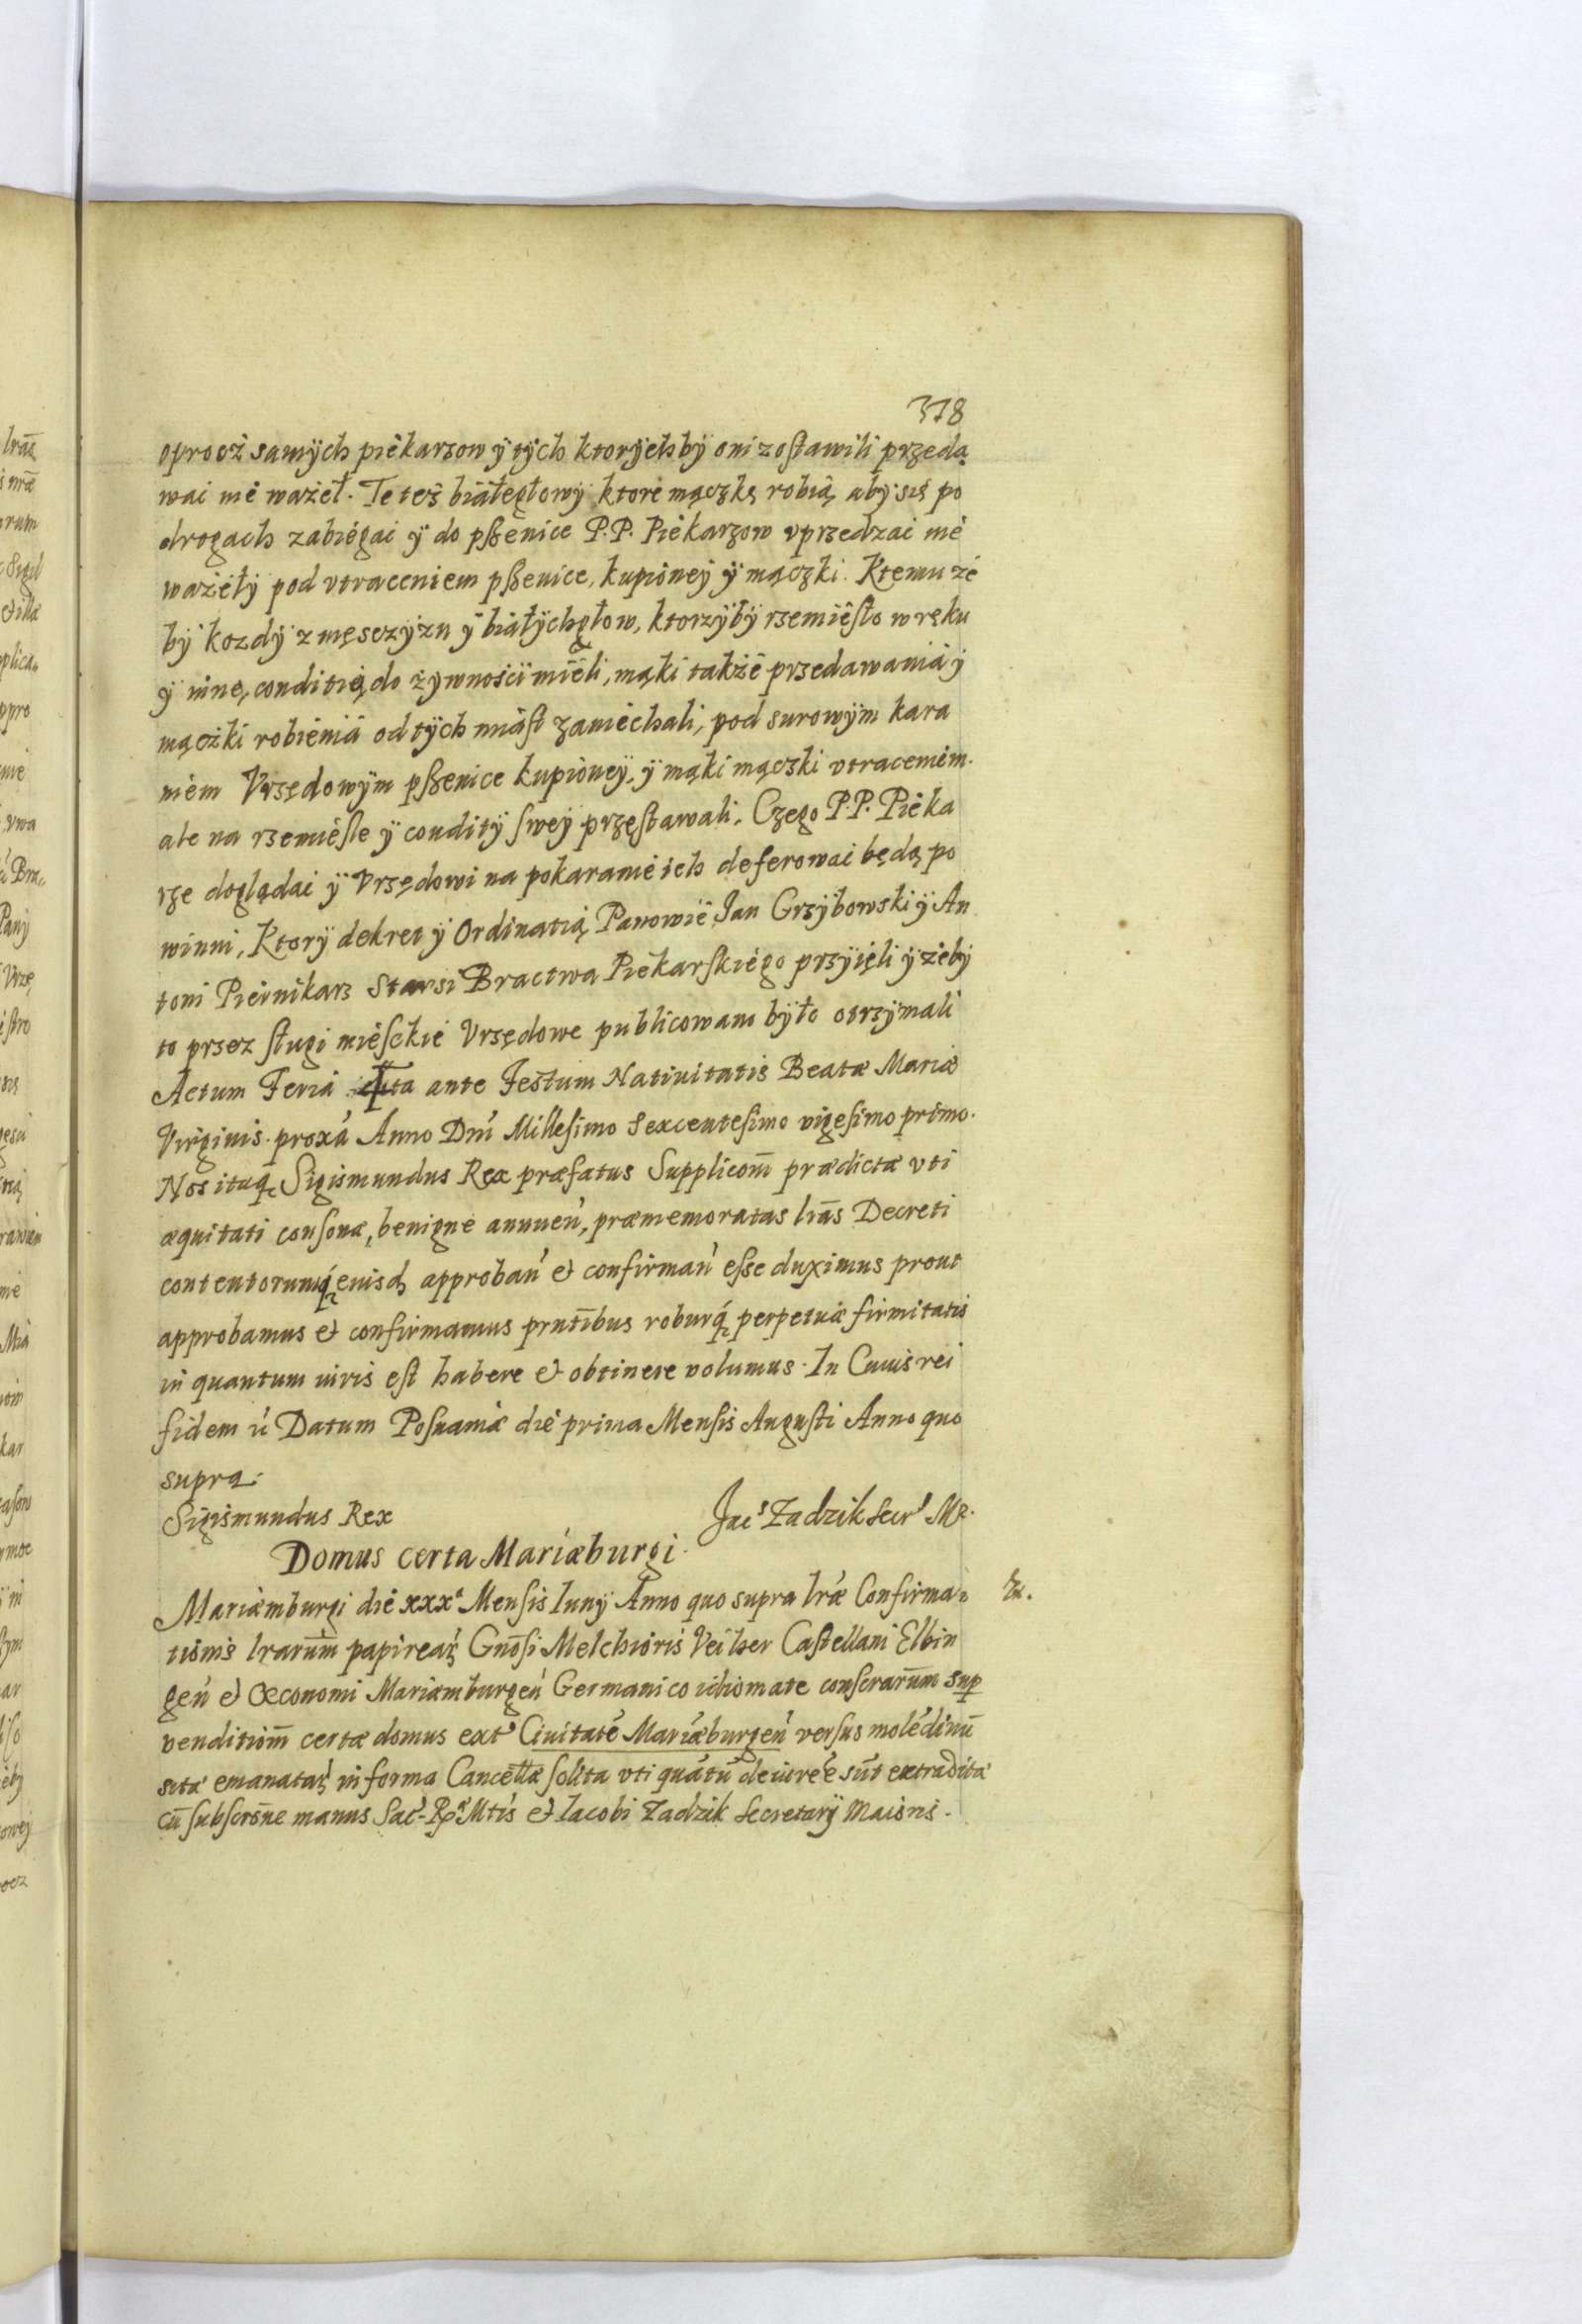 378
oprocz samÿch piekarzow ÿ tÿch ktorÿchbÿ oni zostawili przeda
wai nie ważeł. Te też białegłowÿ ktore mączkę robią abÿ się po
drogach zabiegai ÿ do pszenice P.P. Piekarzow vprzedzai nie
ważełÿ pod vtraceniem pszenice, kupioneÿ ÿ mączki. Ktemu że
bÿ kozdÿ z męsczÿzn ÿ białÿchgłow, ktorzÿbÿ rzemięsło w ręku
ÿ inną conditią do żÿwności mieli, mąki także przedawania ÿ
mączki robienia od tÿch miast zaniechali, pod surowÿm kara
niem Vrzędowÿm pszenice kupioneÿ, ÿ mąki mączki vtraceniem.
ale na rzemieśle ÿ conditÿ sweÿ przestawali. Czego P.P. Pieka
rze doglądai ÿ Vrzędowi na pokaranie ich deferowai będą po
winni, Ktorÿ dekret ÿ Ordinatią Panowie Jan Grzÿbowski ÿ An
toni Piernikarz Starsi Bractwa Piekarskiego przÿięli ÿ żebÿ
to przez sługi mieskie Vrzędowe publicowano bÿło otrzÿmali
Actum Feria ante Festum Natiuitatis Beatæ Mariæ
Virginis proxã Anno Dni Millesimo Sexcentesimo vigesimo primo.
Nos itaq Sigismundus Rex præfatus Supplicom̃ prædictæ vti
æquitati consonæ, benigne annueń, præmemoratas lrãs Decreti
contentorumq eiusd approbań et confirmań esse duximus prout
approbamus et confirmamus prntibus roburq perpetuæ firmitatis
in quantum iuris est habere et obtinere volumus. In Cuius rei
fidem Datum Posnaniæ die prima Mensis Augusti Anno quo
supra.
Sigismundus Rex Jacs Zadzik Secr M.
Domus certa Mariæburgi.
Mariæmburgi die xxxa Mensis Iunÿ Anno quo supra lræ Confirma=
tionis lrarum papirear Gnosi Melchioris Veiher Castellani Elbin
geń et Œconomi Mariæmburgeń Germanico idiomate conscrarum sup
venditiom̃ certæ domus ext Ciuitate Mariæburgeń versus molédinũ
sitæ emanatar in forma Cancellæ solita vti quãtũ de iure ẽ sũt extraditæ
cũ subscrõne manus Sac Ræ Mtis et Iacobi Zadzik Secretarÿ Maioris.